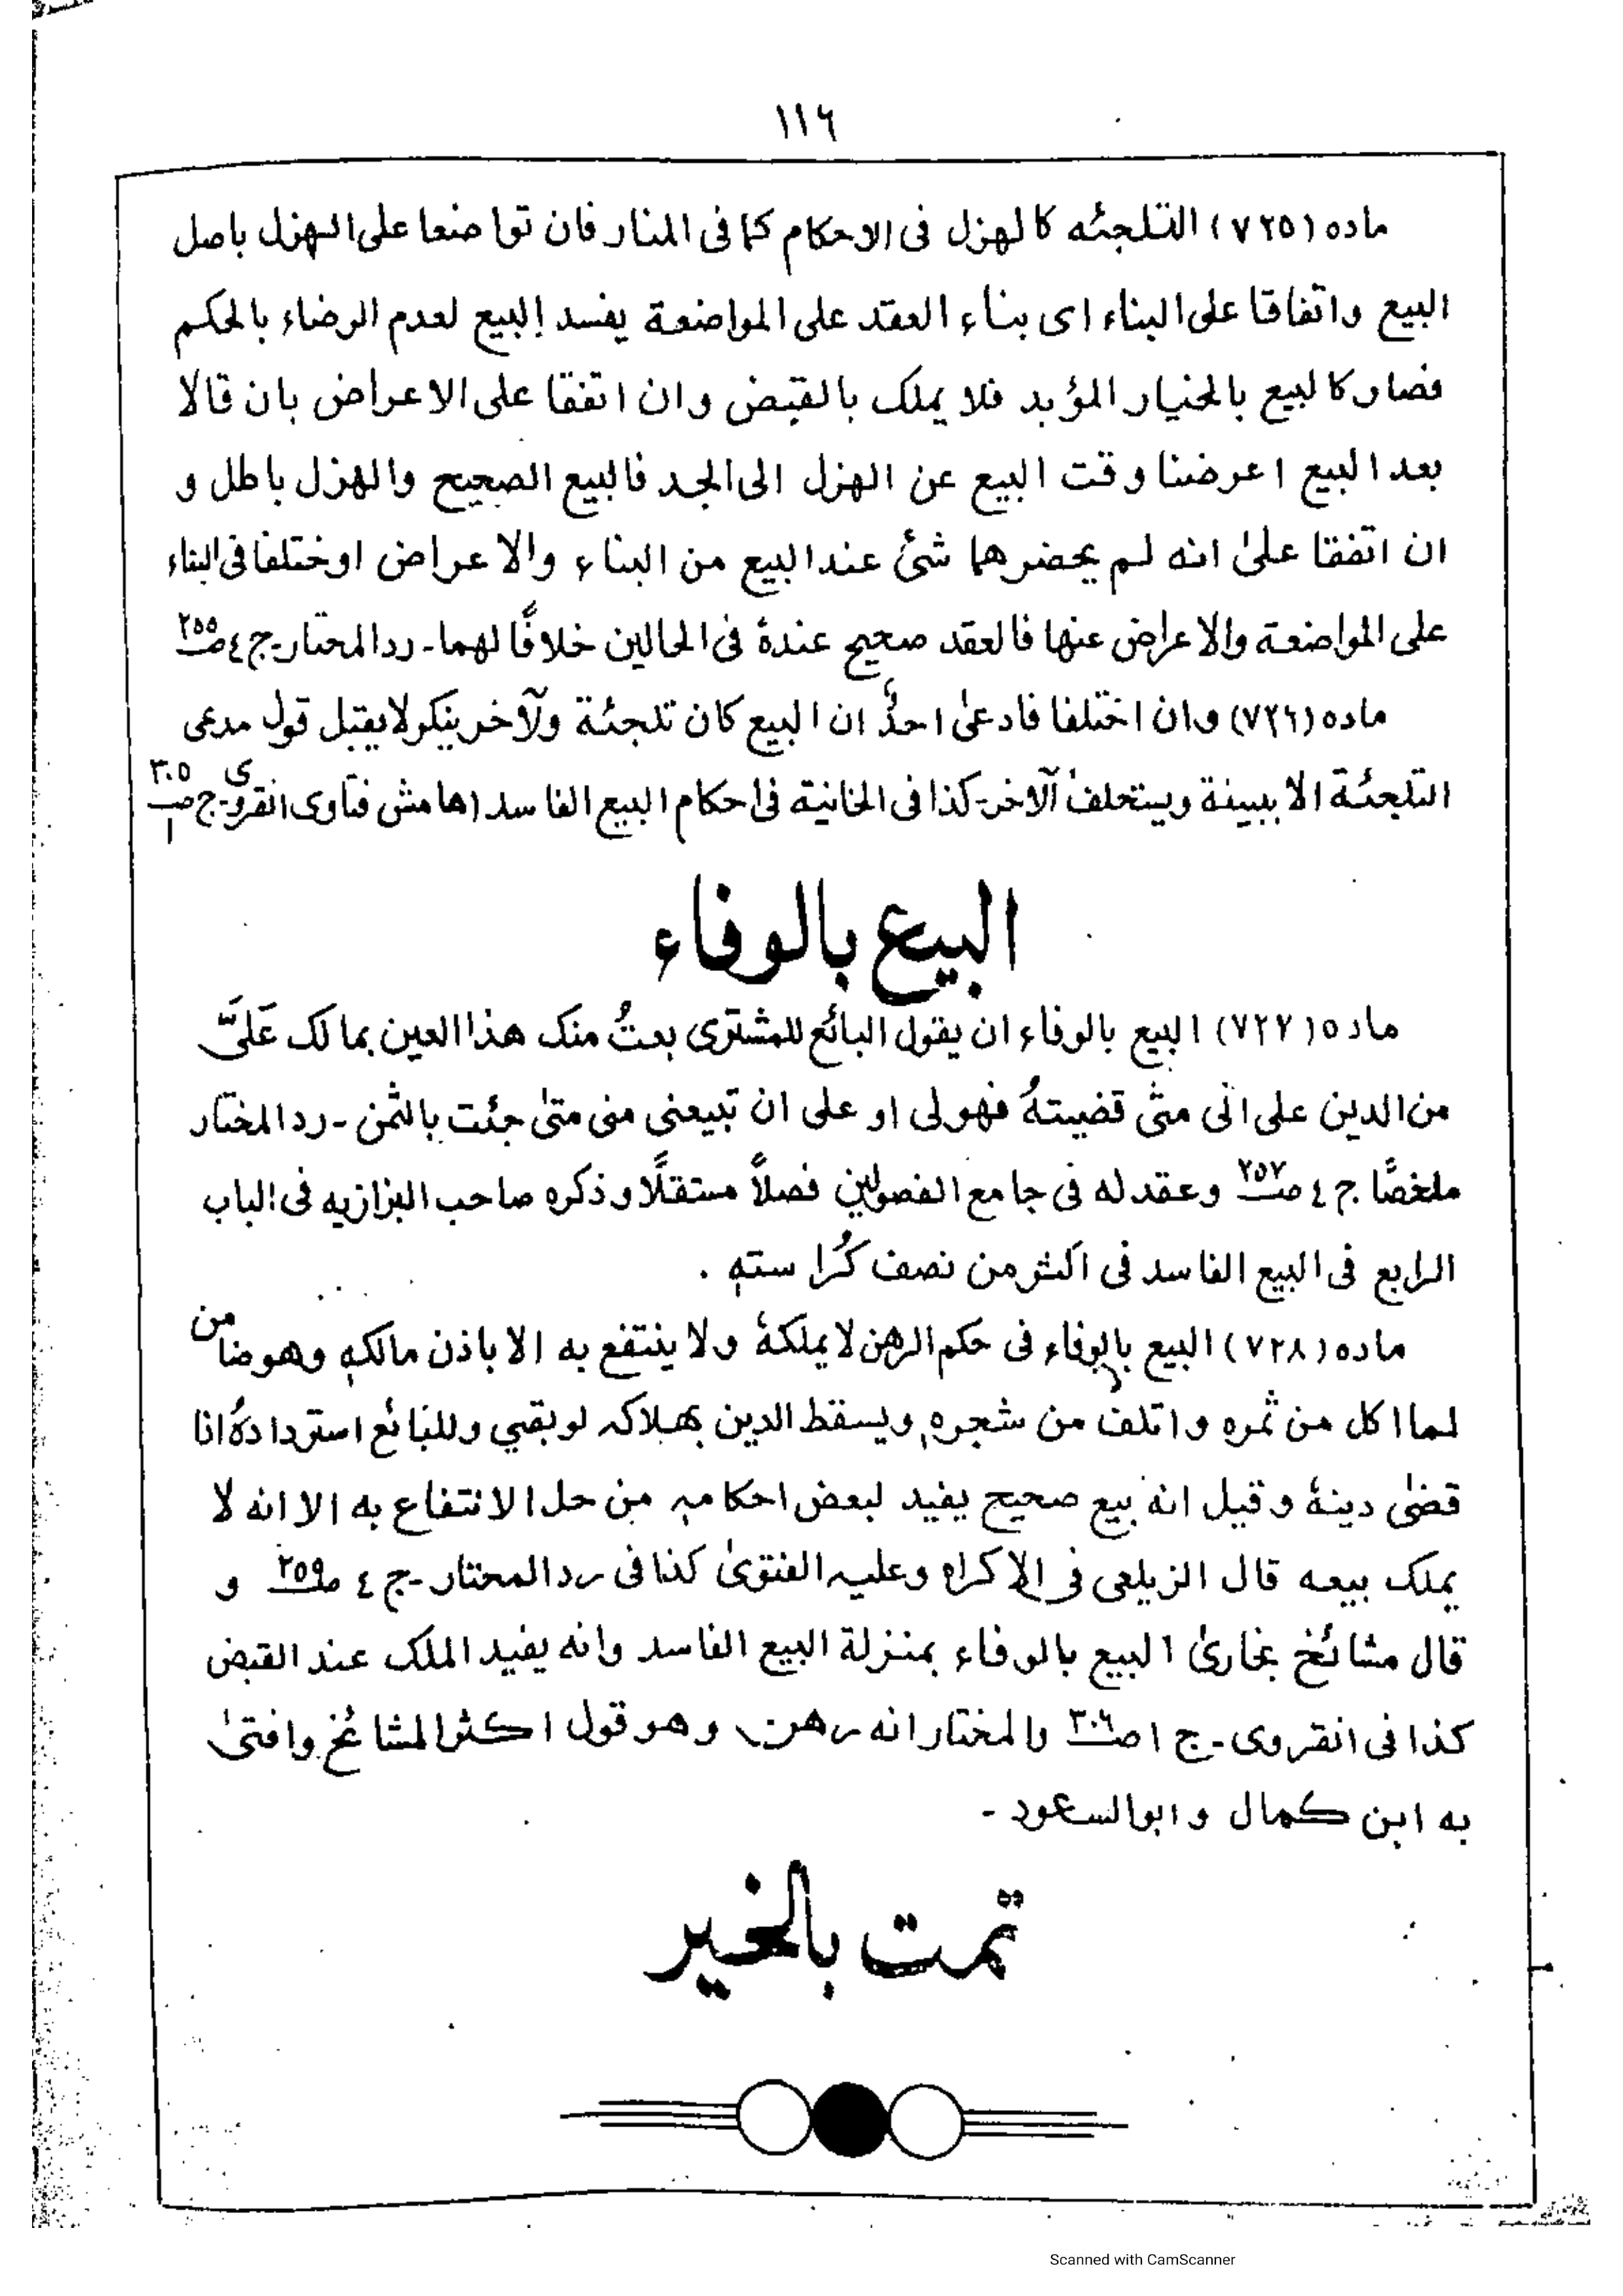 ١١٦
ماده (٧٢٥) التلجئه كالهزل فى الاحكام كما فى المنار فان تواضعا على الهزل باصل
البيع واتفاقا على البناء اى بناء العقد على المواضعة يفسد البيع لعدم الرضاء بالحكم
فصار كالبيع بالخيار المؤبد فلا يملك بالقبض وان اتفقا على الاعراض بان قالا
بعد البيع اعرضنا وقت البيع عن الهزل الى الجد فالبيع الصحيح والهزل باطل و
ان اتفقا على انه لم يحضرهما شئ عند البيع من البناء والاعراض اوختلفا فى البناء
على المواضعة والاعراض عنها فالعقد صحيح عندهٗ فى الحالين خلافًا لهما۔ ردالمحتار۔ج ٤ صـ ٢٥٥
ماده (٧٢٦) وان اختلفا فادعىٰ احدٌ ان البيع كان تلجئة ولآخر ينكر لايقبل قول مدعى
التلجئة الا ببينة ويستحلف الآخر۔كذا فى الخانية فى احكام البيع الفاسد (هامش فتاوى انقروى ج ١ صـ ٣٠٥
البيع بالوفاء
ماده (٧٢٧) البيع بالوفاء ان يقول البائع للمشترى بعتُ منك هذا العين بمالك عَلَىَّ
من الدين على انى متى قضيتهُ فهولى او على ان تبيعنى منى متىٰ جئت بالثمن ۔ ردالمختار
ملخصًّا ج ٤ صـ ٢٥٧ وعقد له فى جامع الفصولين فصلاً مستقلًا وذكره صاحب البزازيه فى الباب
الرابع فى البيع الفاسد فى اكثر من نصف كُراسته .
ماده (٧٢٨) البيع بالوفاء فى حكم الرهن لايملكهٗ ولا ينتفع به الا باذن مالكه وهوضامن
لما اكل من ثمره واتلف من شجره ويسقط الدين بهلاكہ لوبقيي وللبائع استردادهُ اذا
قضىٰ دينهٗ وقيل انه بيع صحيح يفيد لبعض احكامہٖ من حل الانتفاع به الا انه لا
يملك بيعه قال الزيلعى فى الاكراه وعليہ الفتوىٰ كذا فى ردالمحتار۔ج ٤ صـ ٢٥٩ و
قال مشائخ بخارىٰ البيع بالوفاء بمنزلة البيع الفاسد وانه يفيد الملك عند القبض
كذا فى انقروى۔ ج ١ صـ ٣٠٦ والمختار انه رهن وهو قول اكثر المشائخ وافتىٰ
به ابن كمال و ابوالسعود ۔
تمت بالخير
Scanned with CamScanner